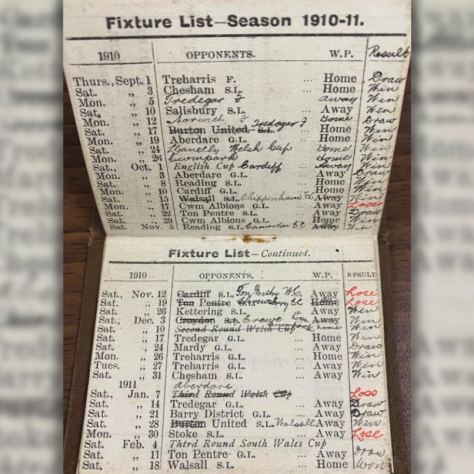 Fixture List—Season 1910-11.
1910 OPPONENTS. W.P. Result
Thurs., Sept. 1 Treharris F. ... Home Draw
Sat. „ 3 Chesham S.L. ... Home Win
Mon. „ 5 Tredegar F ... Away Win
Sat. „ 10 Salisbury S.L. ... Away Won
Mon. „ 12 Norwich F ... Home Draw
Sat. „ 17 Burton United S.L. Tredegar F Home Win
Mon. „ 19 Aberdare G.L. ... Home Win
Sat. „ 24 Llanelly Welsh Cup Home Win
Mon. „ 26 ... Home Win
Sat. Oct. 1 English Cup Cardiff Away
Mon. „ 3 Aberdare G.L. ... Away Draw
Sat. „ 8 Reading S.L. ... Home Win
Mon. „ 10 Cardiff G.L. ... Home Win
Sat. „ 15 Walsall S.L. Chippenham Away Win
Mon. „ 17 Cwm Albions G.L. ... Away Lose
Sat. „ 22 Ton Pentre S.L. ... Away Draw
Sat. „ 29 Cwm Albions G.L. ... Home Win
Sat. Nov. 5 Reading S.L. Away Win
Fixture List—Continued.
1910 OPPONENTS. W.P. RESULT
Sat., Nov. 12 Cardiff S.L. Away Lose
Sat. „ 19 Ton Pentre S.L. Home Lose
Sat. „ 26 Kettering S.L. ... Away Win
Sat., Dec. 3 Croydon S.L. Crewe Away Win
Sat. „ 10 Second Round Welsh Cup Home Win
Sat. „ 17 Tredegar G.L. ... Home Win
Sat. „ 24 Mardy G.L. ... Away Draw
Mon. „ 26 Treharris G.L. ... Home Win
Tues. „ 27 Treharris G.L. ... Away Win
Sat. „ 31 Chesham S.L. ... Away Win
1911 Aberdare
Sat., Jan. 7 Third Round Welsh Cup Loss
Sat. „ 14 Tredegar G.L. ... Away Draw
Sat. „ 21 Barry District G.L. ... Away Draw
Sat. „ 28 Burton United S.L. Walsall Away Win
Mon. „ 30 Stoke S.L. ... Away Lose
Sat. Feb. 4 Third Round South Wales Cup
Sat. „ 11 Ton Pentre G.L. ... Away Draw
Sat. „ 18 Walsall S.L. ... Home Won